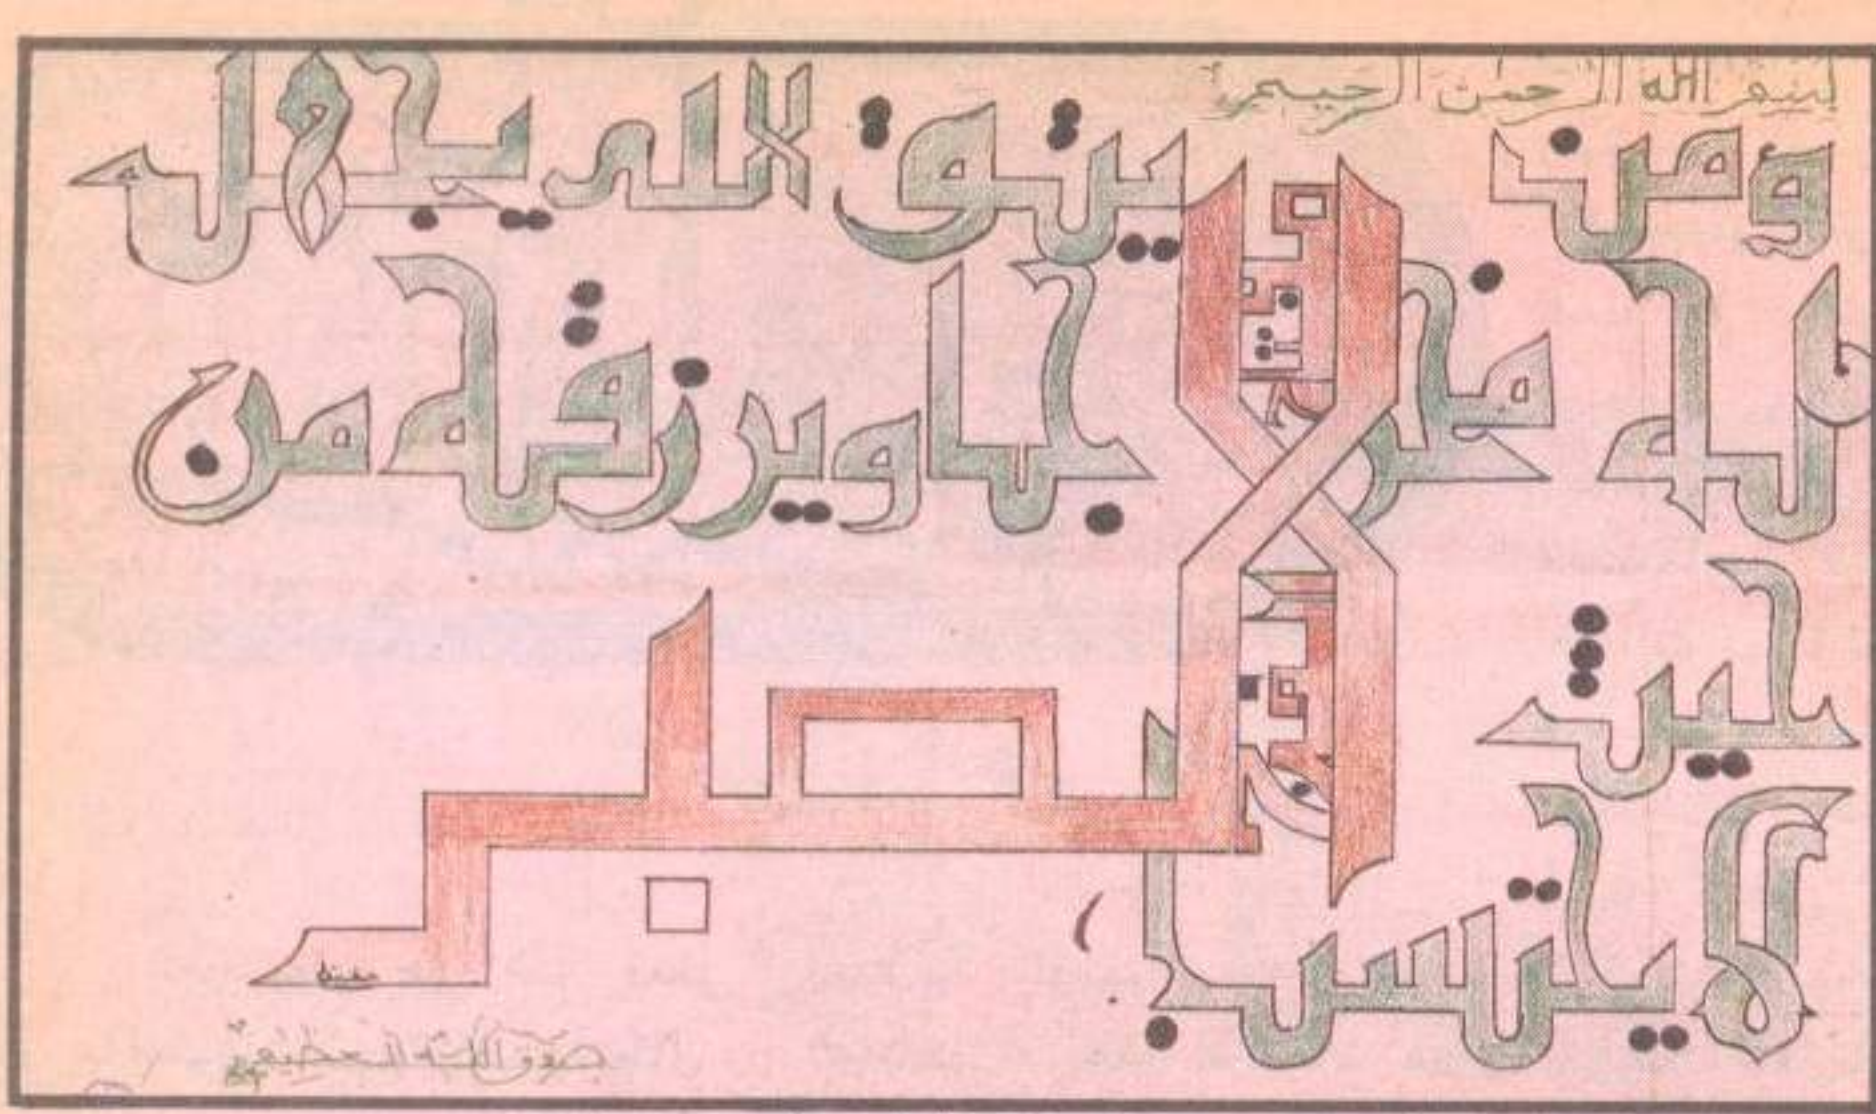 بسم الله الرحمن الرحيم
ومن يتق الله يجعل
له مخرجا ويرزقه من
حيث
لا يحتسب
الصبر
مفتاح
الفرج
صدق الله العظيم